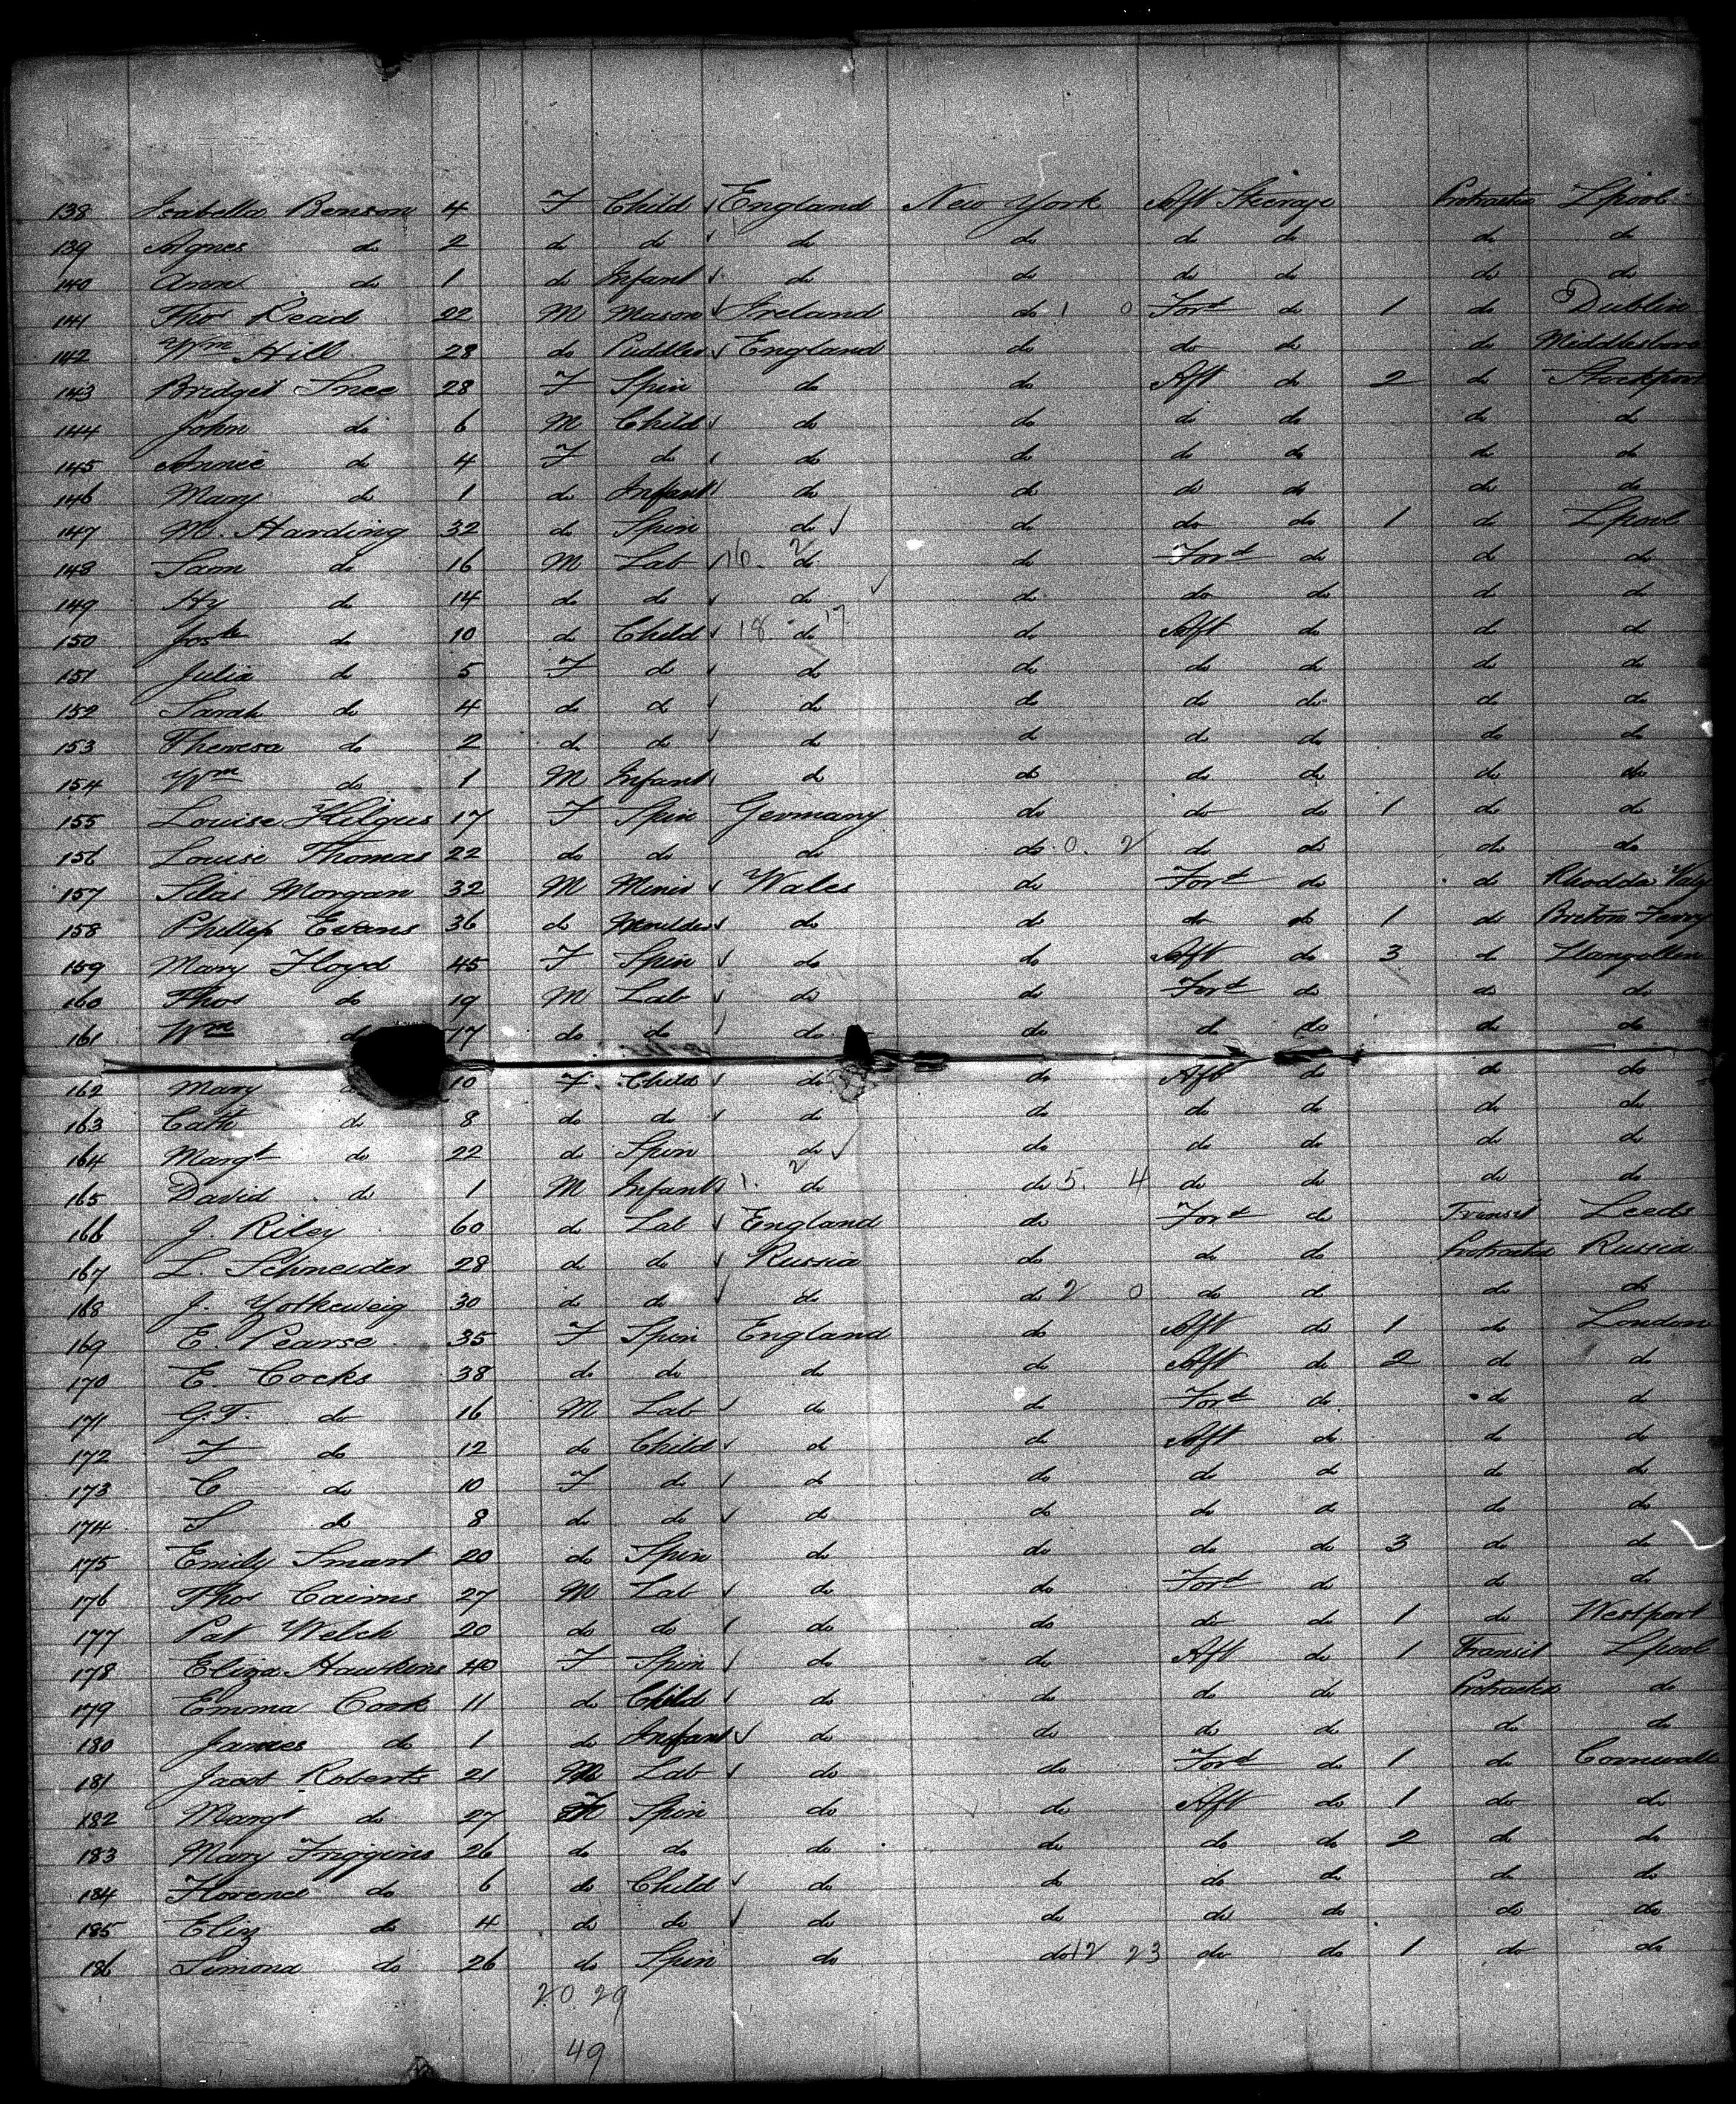 138 Isabella Benson 4 F Child ✓ England New York Aft Steerage Protracted Lpool
139 Agnes do 2 do do ✓ do do do do do do
140 Ann do 1 do Infant ✓ do do do do do do
141 Thos Read 22 M Mason ✓ Ireland do 1 0 Ford do 1 do Dublin
142 Wm Hill 28 do Puddler ✓ England do do do do Middlesboro
143 Bridget Snee 28 F Spin do do Aft do 2 do Stockport
144 John do 6 M Child ✓ do do do do do do
145 Annie do 4 F do ✓ do do do do do do
146 Mary do 1 do Infant ✓ do do do do do do
147 M. Harding 32 do Spin do ✓ do do do 1 do Lpool
148 Sam do 16 M Lab ✓ 16. 2 do do Ford do do do
149 Hy do 14 do do ✓ do ✓ do do do do do
150 Josh do 10 do Child ✓ 18 do 17 do Aft do do do
151 Julia do 5 F do ✓ do do do do do do
152 Sarah do 4 do do ✓ do do do do do do
153 Theresa do 2 do do ✓ do do do do do do
154 Wm do 1 M Infant ✓ do do do do do do
155 Louise Hilgus 17 F Spin Germany do do do 1 do do
156 Louise Thomas 22 do do do do 0. 2 do do do do
157 Silas Morgan 32 M Miner ✓ Wales do Ford do do Rhodda Valy
158 Phillip Evans 36 do Moulder ✓ do do do do 1 do Briton Ferry
159 Mary Floyd 45 F Spin ✓ do do Aft do 3 do Llangollen
160 Thos do 19 M Lab ✓ do do Ford do do do
161 Wm do 17 do do ✓ do do do do do do
162 Mary do 10 F Child ✓ do do Aft do do do
163 Cath do 8 do do ✓ do do do do do do
164 Margt do 22 do Spin do ✓ do do do do do
165 David do 1 M Infant ✓ 1. 2 do do 5. 4 do do do do
166 J. Riley 60 do Lab ✓ England do Ford do Transit Leeds
167 L. Schneider 28 do do ✓ Russia do do do Protracted Russia
168 J. Yotkeweig 30 do do ✓ do do 2 0 do do do do
169 E. Pearse 35 F Spin England do Aft do 1 do London
170 E. Cocks 38 do do do do Aft do 2 do do
171 G.T. do 16 M Lab ✓ do do Ford do do do
172 F do 12 do Child ✓ do do Aft do do do
173 C do 10 F do ✓ do do do do do do
174 S do 8 do do ✓ do do do do do do
175 Emily Smart 20 do Spin do do do do 3 do do
176 Thos Cairns 27 M Lab ✓ do do Ford do do do
177 Pat Welch 20 do do ✓ do do do do 1 do Westport
178 Eliza Hawkins 40 F Spin ✓ do do Aft do 1 Transit Lpool
179 Emma Cook 11 do Child ✓ do do do do Protracted do
180 James do 1 do Infant ✓ do do do do do do
181 Jacob Roberts 21 M Lab ✓ do do Ford do 1 do Cornwall
182 Margt do 27 F Spin do do Aft do 1 do do
183 Mary Friggins 26 do do do do do do 2 do do
184 Florence do 6 do Child ✓ do do do do do do
185 Eliz do 4 do do ✓ do do do do do do
186 Simona do 26 do Spin do do 12 23 do do 1 do do
20. 29
49